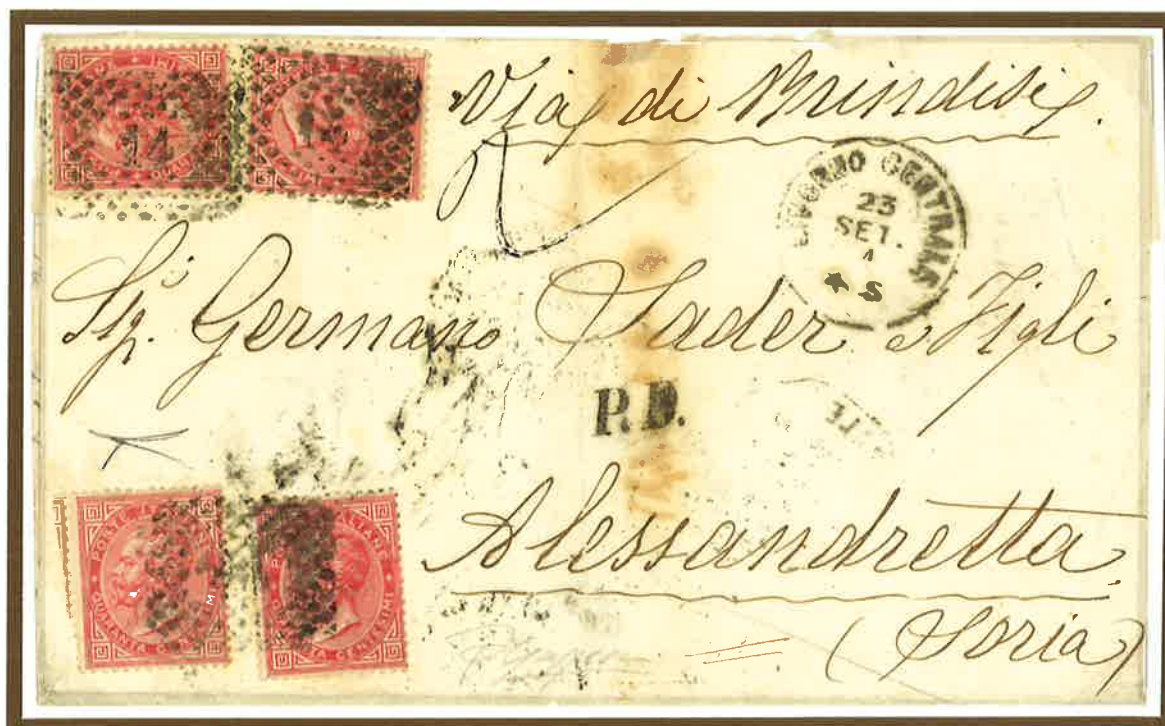 Via di Brindisi.
LIVORNO CENTRALE
23
SET.
Sig. Germano Sader e Figli
P.D.
Alessandretta
(Soria)
POSTE ITALIANE
QUARANTA CENTESIMI